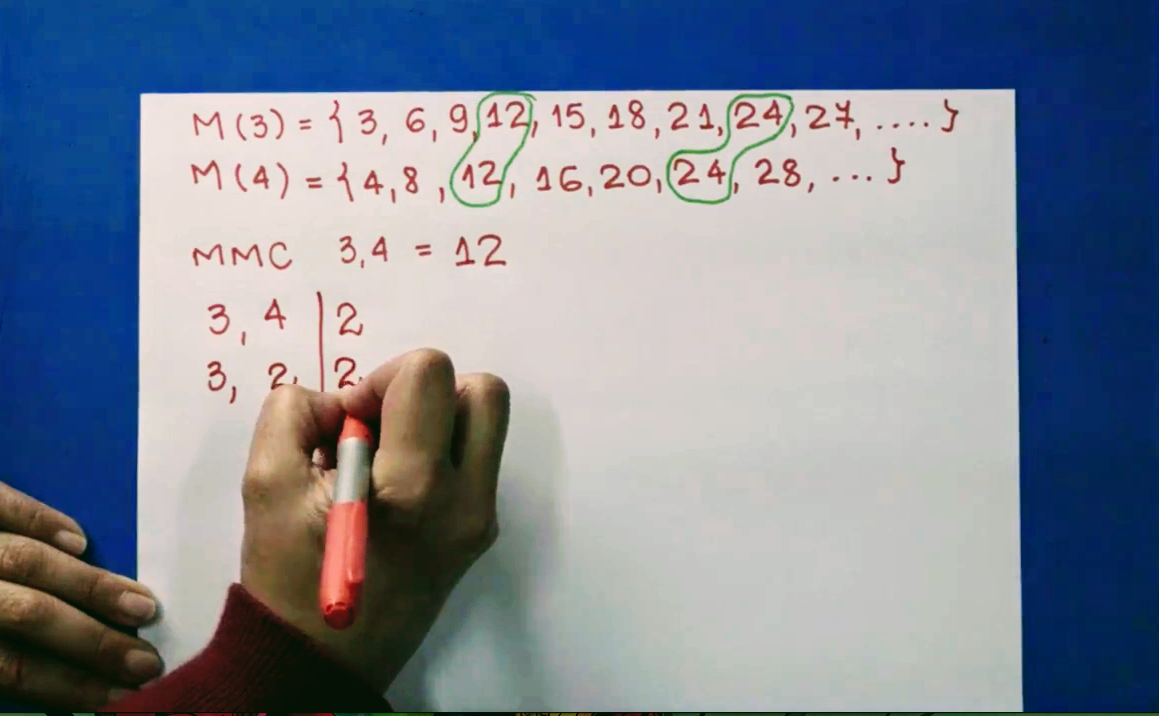 M(3) = { 3, 6, 9, 12, 15, 18, 21, 24, 27, .... }
M(4) = { 4, 8, 12, 16, 20, 24, 28, ... }
MMC 3,4 = 12
3, 4 | 2
3, 2 | 2